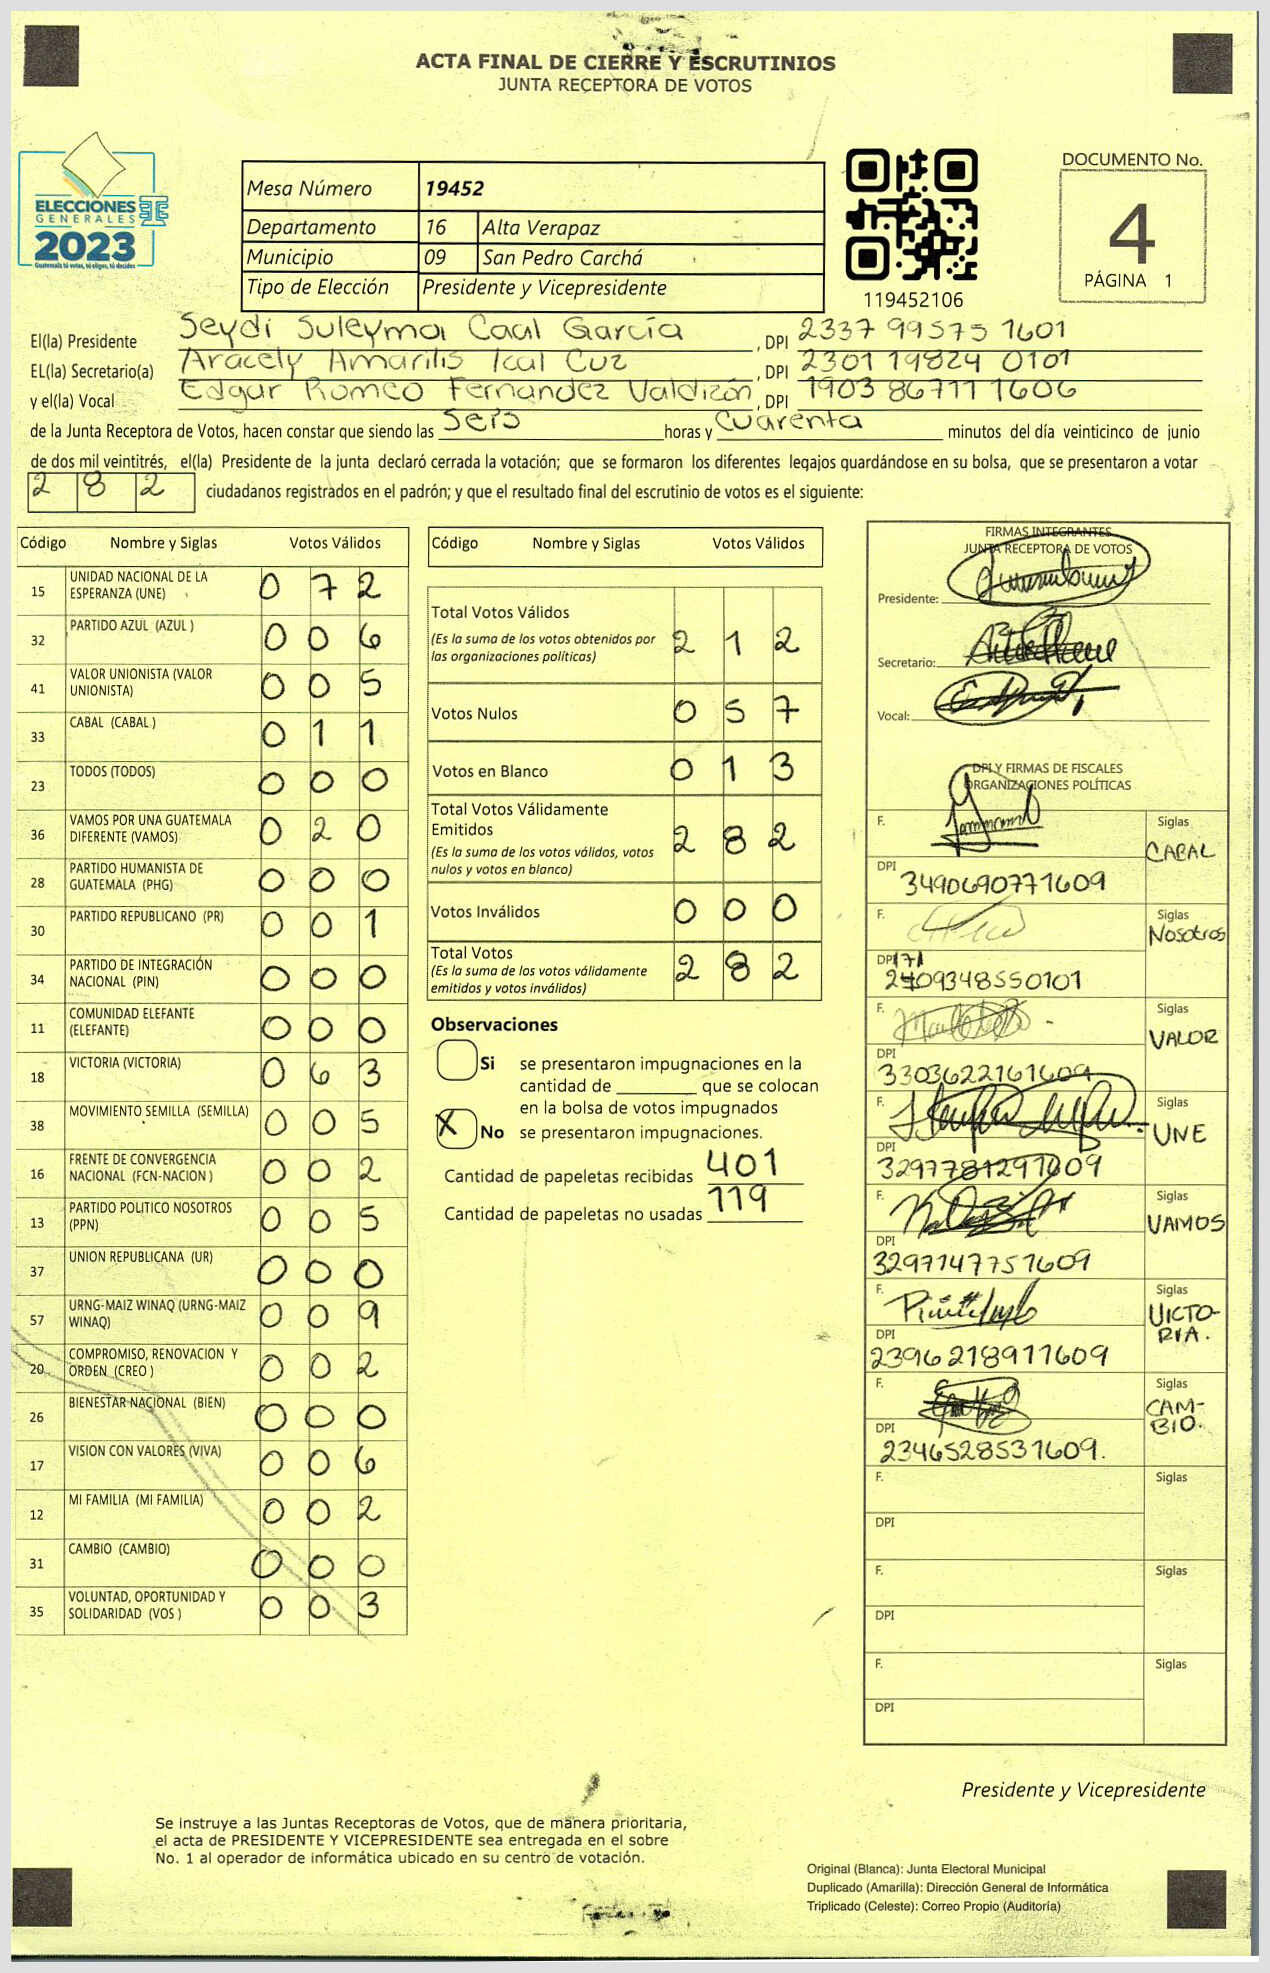 ACTA FINAL DE CIERRE Y ESCRUTINIOS
JUNTA RECEPTORA DE VOTOS
ELECCIONES
GENERALES
2023
Guatemala tú votas, tú eliges, tú decides
Mesa Número 19452
Departamento 16 Alta Verapaz
Municipio 09 San Pedro Carchá
Tipo de Elección Presidente y Vicepresidente
119452106
DOCUMENTO No.
4
PÁGINA 1
El(la) Presidente Seydi Suleyma Caal García, DPI 2337 99575 1601
EL(la) Secretario(a) Aracely Amarilis Ical Cuz, DPI 2301 19824 0101
y el(la) Vocal Edgar Romeo Fernandez Valdizón, DPI 1903 86711 1606
de la Junta Receptora de Votos, hacen constar que siendo las Seis horas y Cuarenta minutos del día veinticinco de junio
de dos mil veintitrés, el(la) Presidente de la junta declaró cerrada la votación; que se formaron los diferentes legajos guardándose en su bolsa, que se presentaron a votar
2 8 2 ciudadanos registrados en el padrón; y que el resultado final del escrutinio de votos es el siguiente:
Código Nombre y Siglas Votos Válidos
15 UNIDAD NACIONAL DE LA ESPERANZA (UNE) 0 7 2
32 PARTIDO AZUL (AZUL ) 0 0 6
41 VALOR UNIONISTA (VALOR UNIONISTA) 0 0 5
33 CABAL (CABAL ) 0 1 1
23 TODOS (TODOS) 0 0 0
36 VAMOS POR UNA GUATEMALA DIFERENTE (VAMOS) 0 2 0
28 PARTIDO HUMANISTA DE GUATEMALA (PHG) 0 0 0
30 PARTIDO REPUBLICANO (PR) 0 0 1
34 PARTIDO DE INTEGRACIÓN NACIONAL (PIN) 0 0 0
11 COMUNIDAD ELEFANTE (ELEFANTE) 0 0 0
18 VICTORIA (VICTORIA) 0 6 3
38 MOVIMIENTO SEMILLA (SEMILLA) 0 0 5
16 FRENTE DE CONVERGENCIA NACIONAL (FCN-NACION ) 0 0 2
13 PARTIDO POLITICO NOSOTROS (PPN) 0 0 5
37 UNION REPUBLICANA (UR) 0 0 0
57 URNG-MAIZ WINAQ (URNG-MAIZ WINAQ) 0 0 9
20 COMPROMISO, RENOVACION Y ORDEN (CREO ) 0 0 2
26 BIENESTAR NACIONAL (BIEN) 0 0 0
17 VISION CON VALORES (VIVA) 0 0 6
12 MI FAMILIA (MI FAMILIA) 0 0 2
31 CAMBIO (CAMBIO) 0 0 0
35 VOLUNTAD, OPORTUNIDAD Y SOLIDARIDAD (VOS ) 0 0 3
Código Nombre y Siglas Votos Válidos
Total Votos Válidos 2 1 2
(Es la suma de los votos obtenidos por
las organizaciones políticas)
Votos Nulos 0 5 7
Votos en Blanco 0 1 3
Total Votos Válidamente
Emitidos 2 8 2
(Es la suma de los votos válidos, votos
nulos y votos en blanco)
Votos Inválidos 0 0 0
Total Votos 2 8 2
(Es la suma de los votos válidamente
emitidos y votos inválidos)
Observaciones
Si se presentaron impugnaciones en la
cantidad de ________ que se colocan
en la bolsa de votos impugnados
X No se presentaron impugnaciones.
Cantidad de papeletas recibidas 401
Cantidad de papeletas no usadas 119
FIRMAS INTEGRANTES
JUNTA RECEPTORA DE VOTOS
Presidente:
Secretario:
Vocal:
DPI Y FIRMAS DE FISCALES
ORGANIZACIONES POLÍTICAS
F. Siglas CABAL
DPI 3490690771609
F. Siglas Nosotros
DPI
F. Siglas VALOR
DPI 3303622161609
F. Siglas UNE
DPI 3297781291609
F. Siglas VAMOS
DPI 3297147751609
F. Siglas VICTO-
RIA.
DPI 2396218911609
F. Siglas CAM-
BIO.
DPI 2346528531609.
F. Siglas
DPI
F. Siglas
DPI
F. Siglas
DPI
Presidente y Vicepresidente
Se instruye a las Juntas Receptoras de Votos, que de manera prioritaria,
el acta de PRESIDENTE Y VICEPRESIDENTE sea entregada en el sobre
No. 1 al operador de informática ubicado en su centro de votación.
Original (Blanca): Junta Electoral Municipal
Duplicado (Amarilla): Dirección General de Informática
Triplicado (Celeste): Correo Propio (Auditoría)